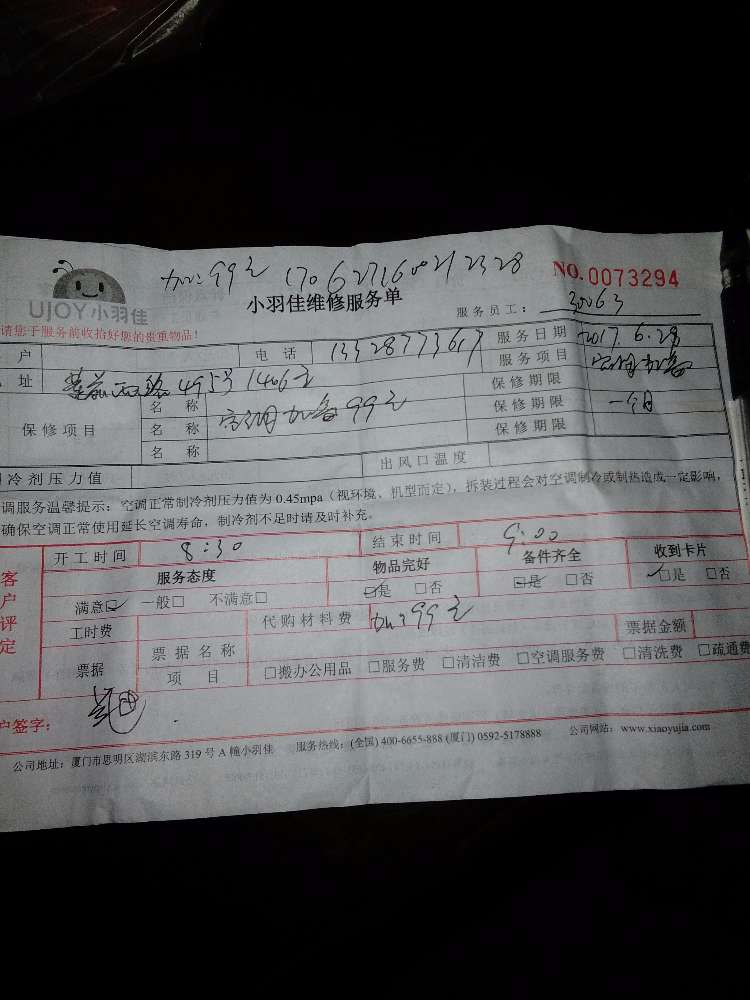 加:99元 1706271600212328
NO.0073294
UJOY小羽佳
小羽佳维修服务单
服务员工: 30063
请您于服务前收拾好您的贵重物品!
户 电话 服务日期 2017.6.28
址 495号1406室 服务项目 空调加氟
保修期限
保修项目 名称 空调加氟99元 保修期限 一个月
名称 保修期限
名称
冷剂压力值 出风口温度
调服务温馨提示:空调正常制冷剂压力值为 0.45mpa(视环境、机型而定),拆装过程会对空调制冷或制热造成一定影响,
确保空调正常使用延长空调寿命,制冷剂不足时请及时补充。
客户评定
开工时间 8:30 结束时间 9:00
服务态度 物品完好 备件齐全 收到卡片
满意☑ 一般□ 不满意□ ☑是 □否 ☑是 □否 ☑是 □否
工时费 代购材料费 加:99元
票据 票据名称 票据金额
项目 □搬办公用品 □服务费 □清洁费 □空调服务费 □清洗费 □疏通费
户签字:
公司地址:厦门市思明区湖滨东路 319 号 A 幢小羽佳 服务热线:(全国) 400-6655-888 (厦门) 0592-5178888 公司网站:www.xiaoyujia.com